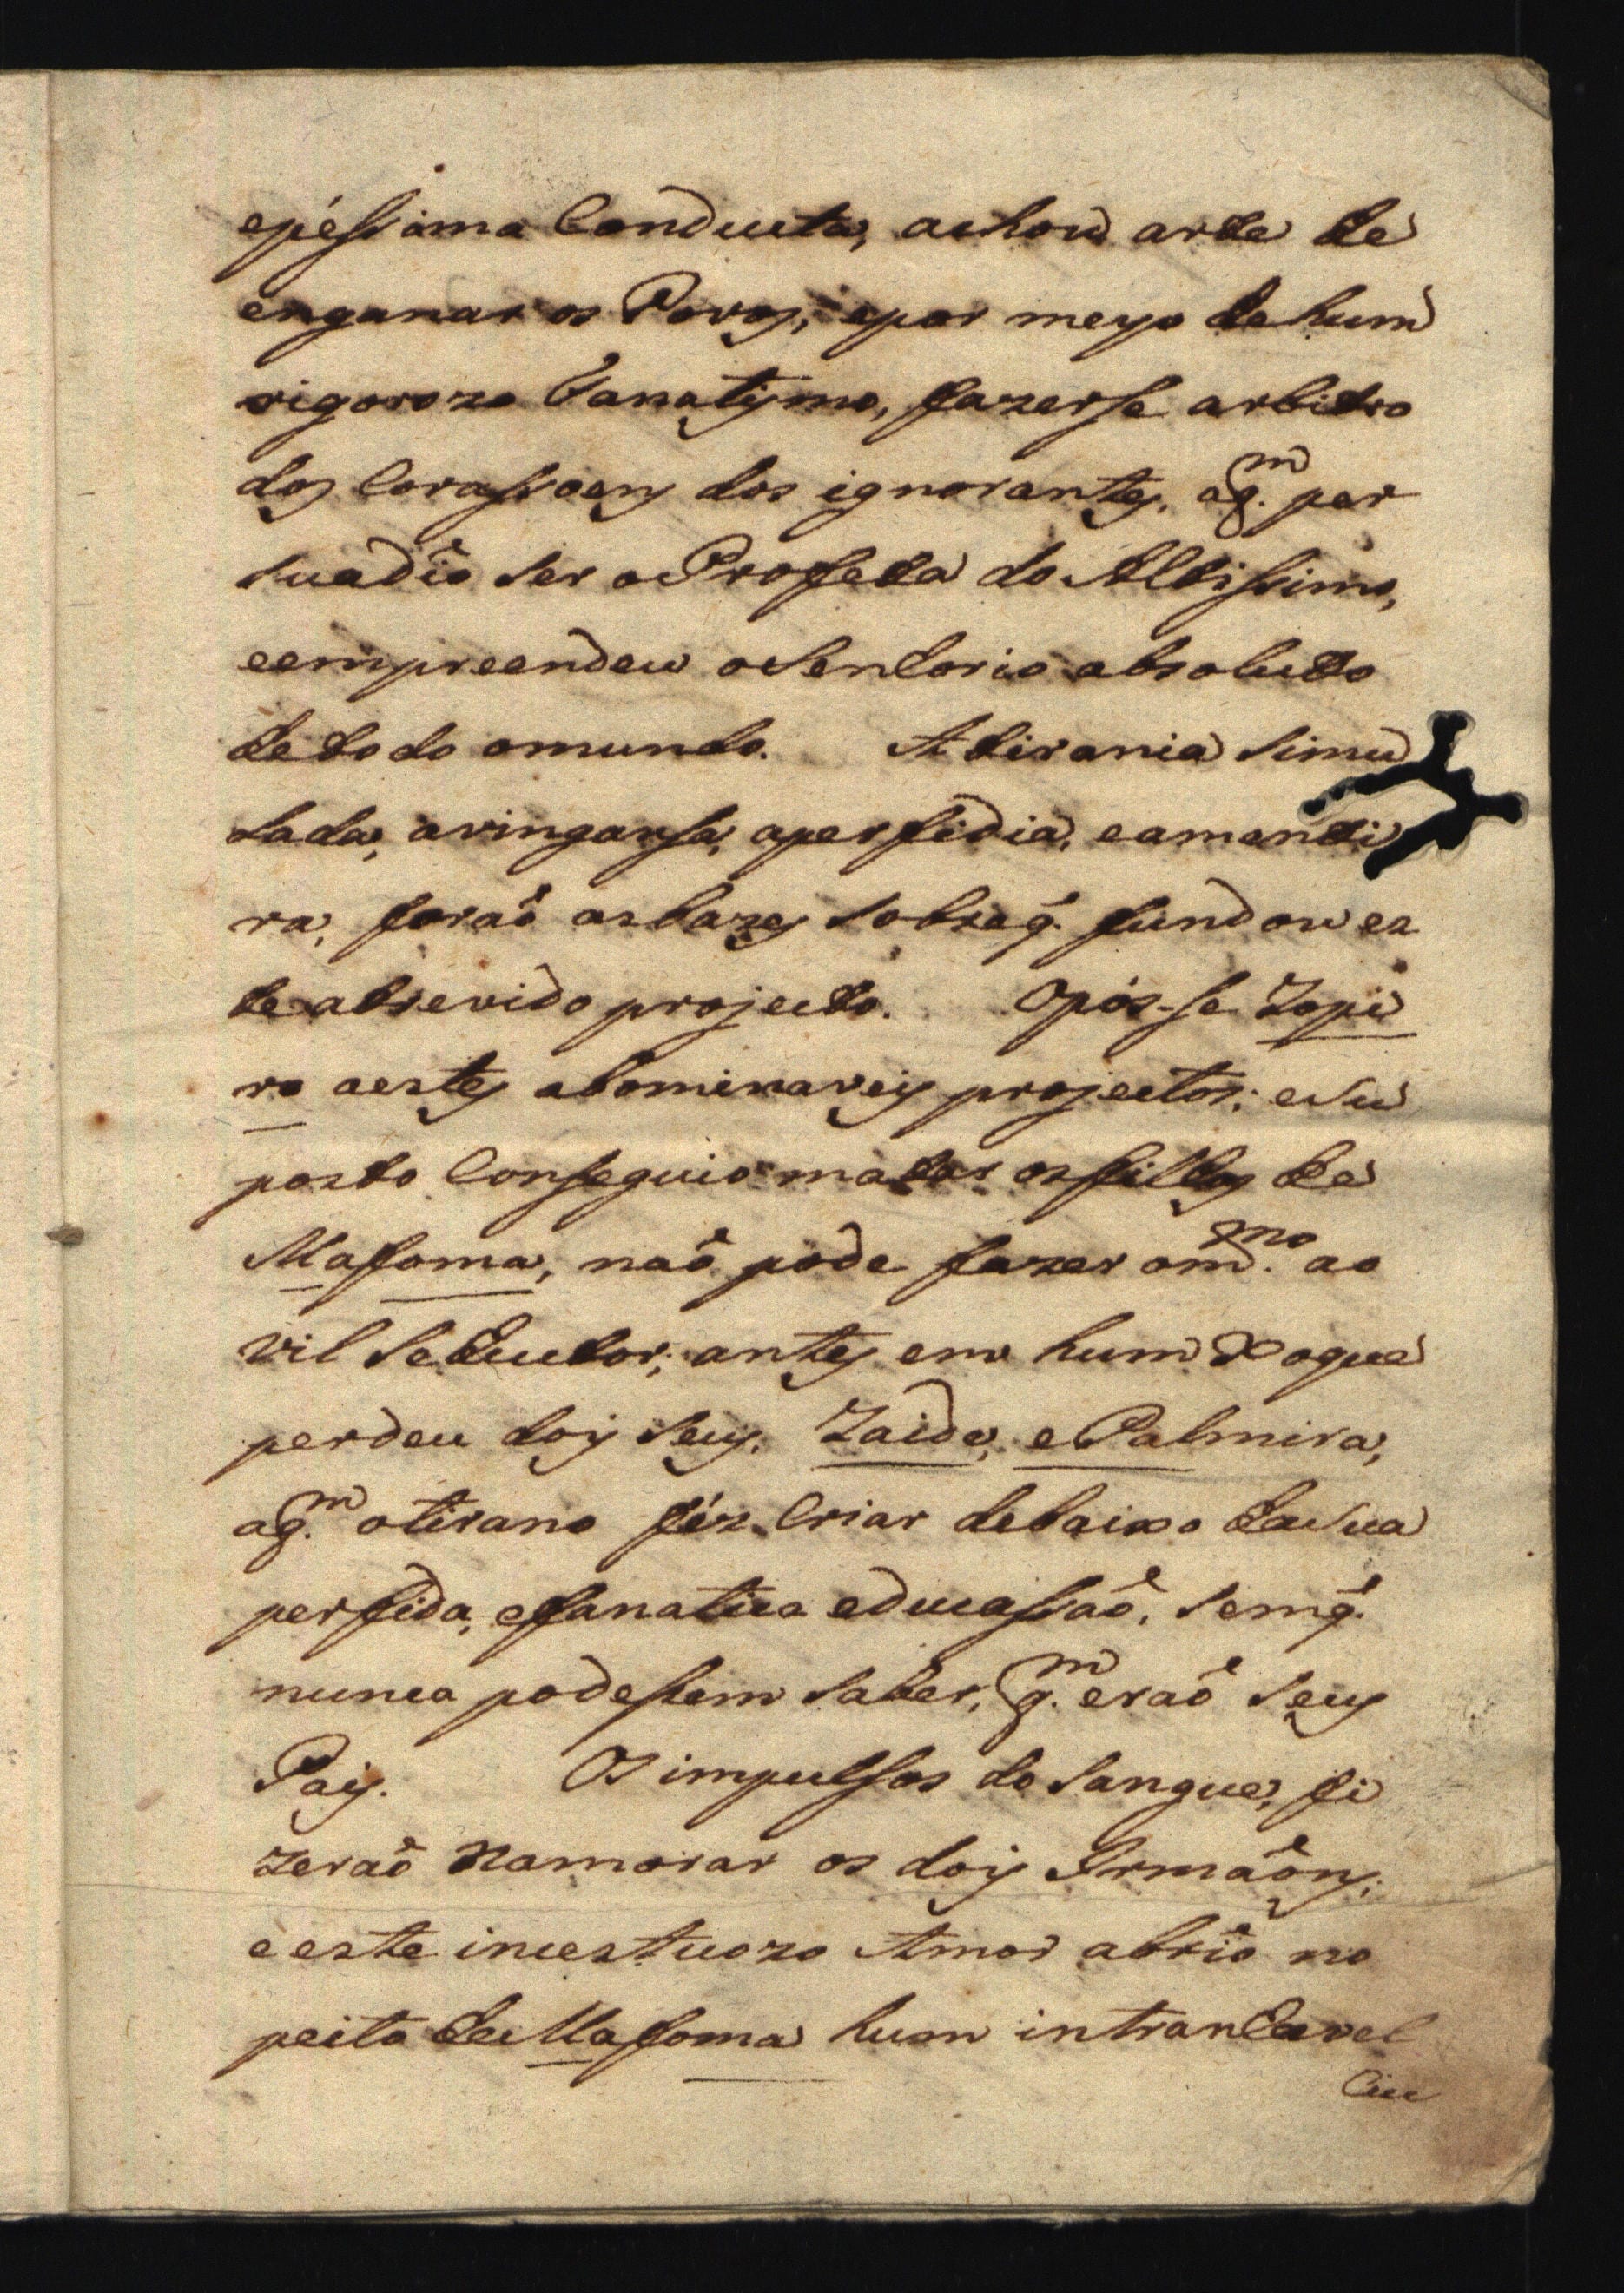 epéssima Conducta, achou arte de
enganar os Povos, epor meyo dehum
rigorozo Fanatysmo, fazerse arbitro
dos Corassoens dos ignorantes, aq.^m per
suadio ser oProfeta do Altissimo,
eempreendeu o Senhorio absoluto
detodo omundo. A tirania simu
lada, avingansa, aperfidia, eamenti
ra, foraõ asbazes sobreq̃. fundou es
te atrevido projecto. Opós-se Zopi
ro aestes abominaveis projectos; esu
posto Conseguio matar osfilhos de
Mafoma, naõ pode fazer om.^mo ao
vil seductor; antes em hum xoque
perdeu dois seus. Zaide, ePalmira,
aq.^m otirano féz Criar debaixo dasua
perfida, efanatica educassaõ, semq̃.
nunca podessem saber, q.^m eraõ seus
Pais. Os impulsos do sangue, fi
zeraõ Namorar os dois Irmaõns;
eeste incestuozo Amor abrio no
peito deMafoma hum intrantavel
Ciu